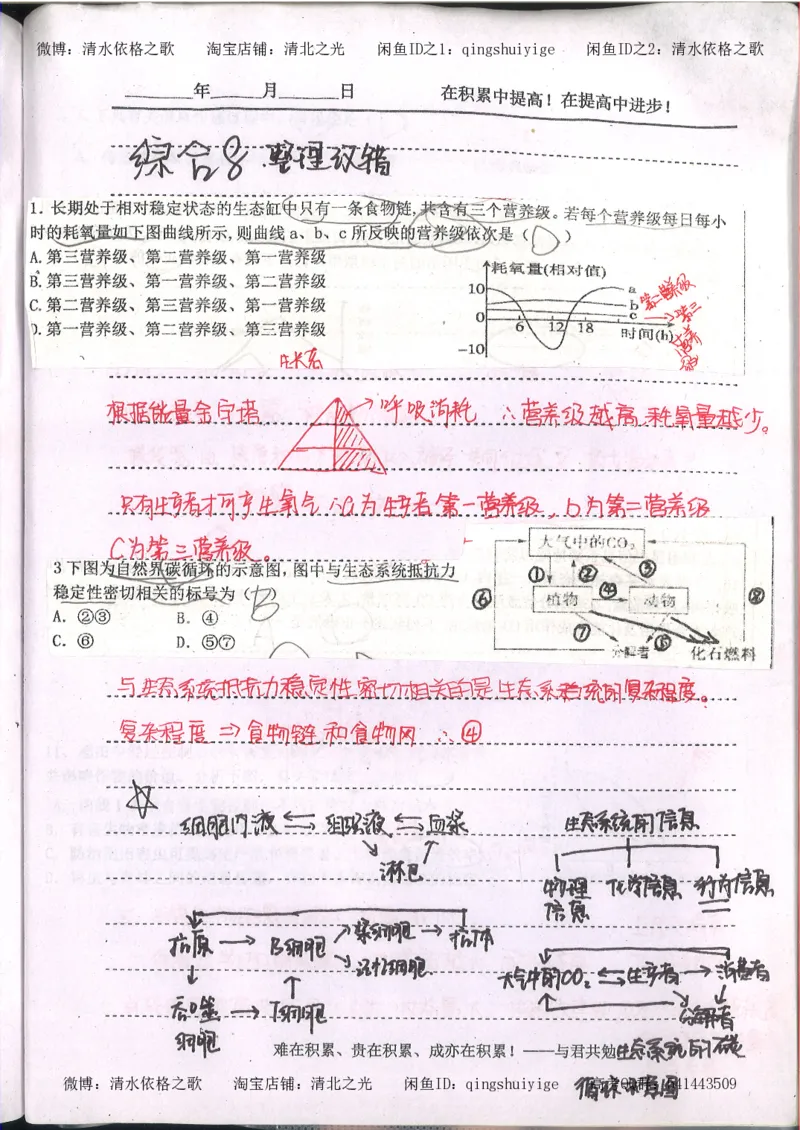 微博：清水依格之歌 淘宝店铺：清北之光 闲鱼ID之1：qingshuiyige 闲鱼ID之2：清水依格之歌
年 月 日 在积累中提高！在提高中进步！
综合8.整理改错
1. 长期处于相对稳定状态的生态缸中只有一条食物链，共含有三个营养级。若每个营养级每日每小
时的耗氧量如下图曲线所示，则曲线 a、b、c 所反映的营养级依次是（D）
A. 第三营养级、第二营养级、第一营养级
B. 第三营养级、第一营养级、第二营养级
C. 第二营养级、第三营养级、第一营养级
D. 第一营养级、第二营养级、第三营养级
耗氧量(相对值)
10
0
-10
6 12 18
时间(h)
a
b
c
第二营养级
第三
营养
级
根据能量金字塔 呼吸消耗 ∴营养级越高耗氧量越少。
只有生产者才可产生氧气 ∴a为生产者第一营养级，b为第二营养级
C为第三营养级。
3 下图为自然界碳循环的示意图，图中与生态系统抵抗力
稳定性密切相关的标号为（B
A. ②③ B. ④
C. ⑥ D. ⑤⑦
大气中的CO₂
① ② ③
⑥ 植物 ④ 动物 ⑧
⑦ ⑤
分解者 化石燃料
与生态系统抵抗力稳定性密切相关的是生态系统的复杂程度。
复杂程度 ⇒食物链和食物网 ∴④
细胞内液 ⇌ 组织液 ⇌ 血浆
淋巴
生态系统的信息
物理信息 化学信息 行为信息
抗原 → B细胞 浆细胞 → 抗体
记忆细胞
吞噬细胞 → T细胞
大气中的CO₂ ⇌ 生产者 → 消费者
分解者
难在积累、贵在积累、成亦在积累！——与君共勉
生态系统的碳
循环示意图
微博：清水依格之歌 淘宝店铺：清北之光 闲鱼ID：qingshuiyige